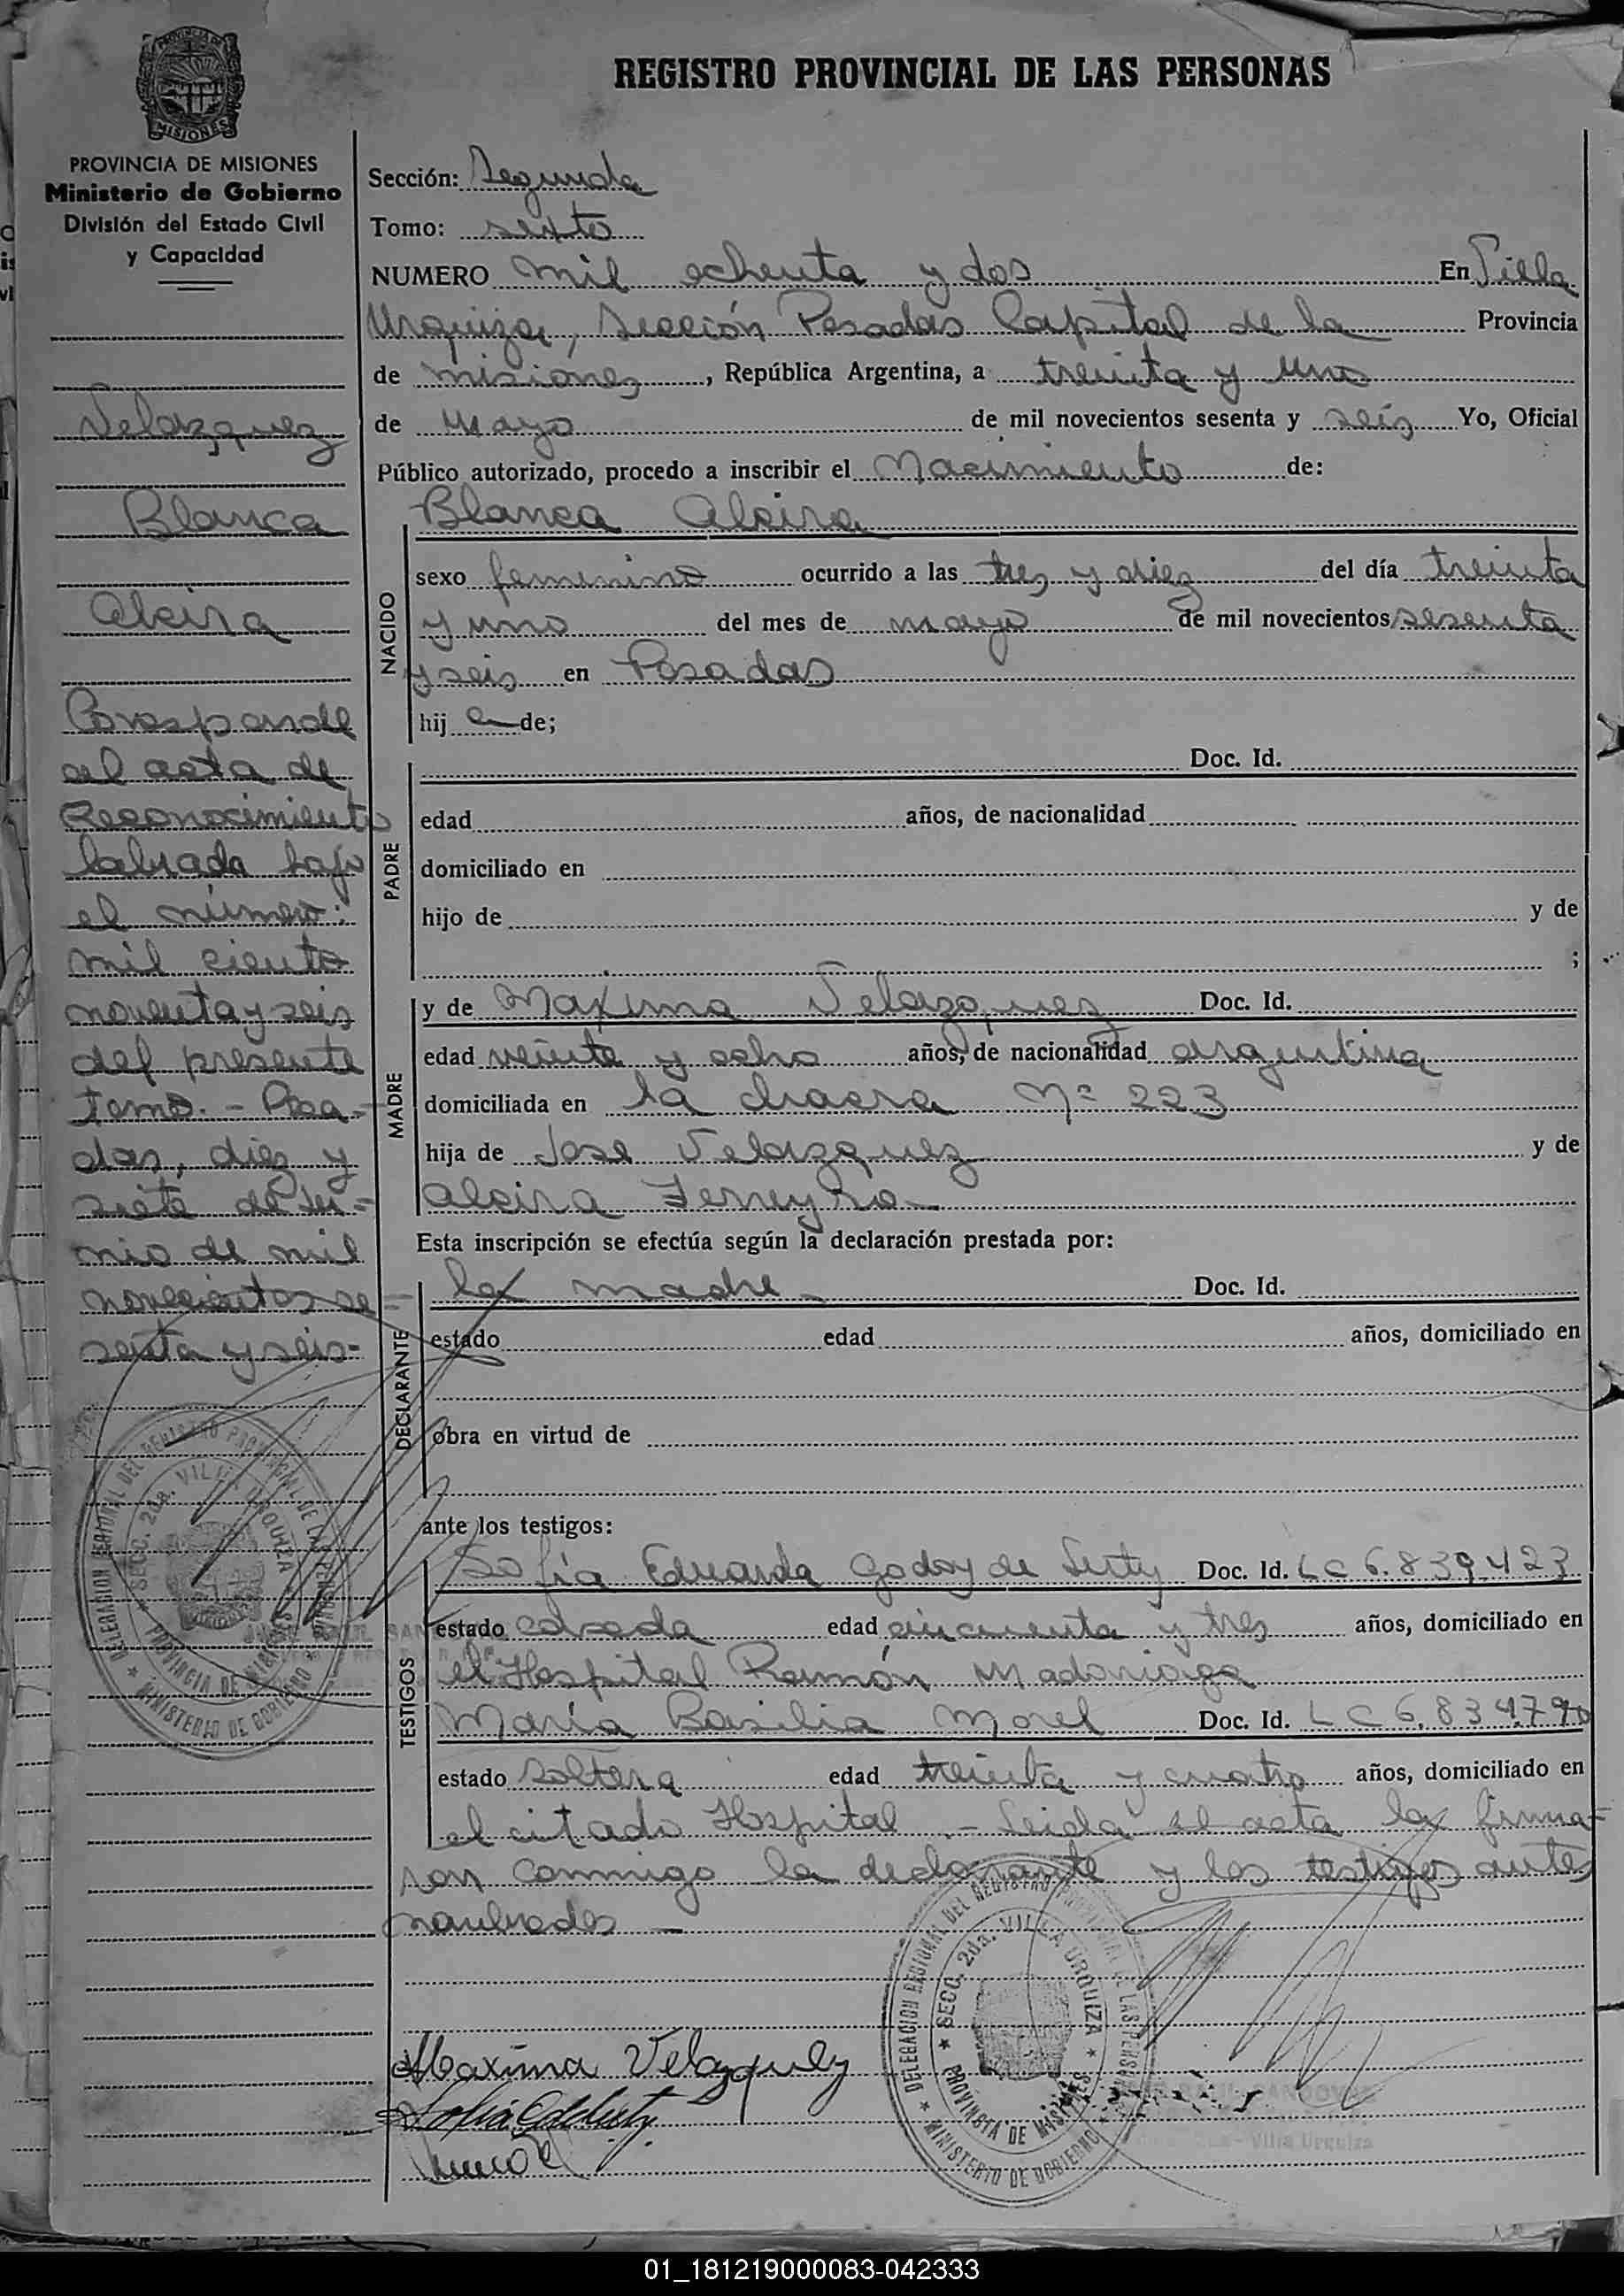 REGISTRO PROVINCIAL DE LAS PERSONAS
MISIONES
PROVINCIA DE MISIONES
Ministerio de Gobierno
División del Estado Civil
y Capacidad
Velazquez
Blanca
Alcira
Corresponde
al acta de
Reconocimiento
labrada bajo
el número:
mil ciento
noventa y seis
del presente
tomo. - Posa-
das, diez y
siete de ju-
nio de mil
novecientos se-
senta y seis-
Sección: Segunda
Tomo: sexto
NUMERO mil ochenta y dos En Villa
Urquiza, Sección Posadas Capital de la Provincia
de misiones, República Argentina, a treinta y uno
de Mayo de mil novecientos sesenta y seis Yo, Oficial
Público autorizado, procedo a inscribir el Nacimiento de:
NACIDO
Blanca Alcira
sexo femenino ocurrido a las tres y diez del día treinta
y uno del mes de mayo de mil novecientos sesenta
y seis en Posadas
hij a de;
PADRE
Doc. Id.
edad años, de nacionalidad
domiciliado en
hijo de y de
;
MADRE
y de Maxima Velazquez Doc. Id.
edad veinte y ocho años, de nacionalidad argentina
domiciliada en la chacra Nº 223
hija de Jose Velazquez y de
Alcira Ferreyra
Esta inscripción se efectúa según la declaración prestada por:
DECLARANTE
la madre - Doc. Id.
estado edad años, domiciliado en
obra en virtud de
ante los testigos:
TESTIGOS
Sofía Eduarda Godoy de Doc. Id. LC 6.839.423
estado casada edad cincuenta y tres años, domiciliado en
el Hospital Ramón Madariaga
María Basilia Morel Doc. Id. LC 6.834.790
estado soltera edad treinta y cuatro años, domiciliado en
el citado Hospital - Leida el acta la firma-
ron conmigo la declarante y los testigos antes
nombrados -
DELEGACION REGIONAL DEL REGISTRO PROVINCIAL DE LAS PERSONAS
SECC. 2da. VILLA URQUIZA
PROVINCIA DE MISIONES
MINISTERIO DE GOBIERNO
DELEGACION REGIONAL DEL REGISTRO PROVINCIAL DE LAS PERSONAS
SECC. 2da. VILLA URQUIZA
PROVINCIA DE MISIONES
MINISTERIO DE GOBIERNO
Maxima Velazquez
- Villa Urquiza
01_181219000083-042333